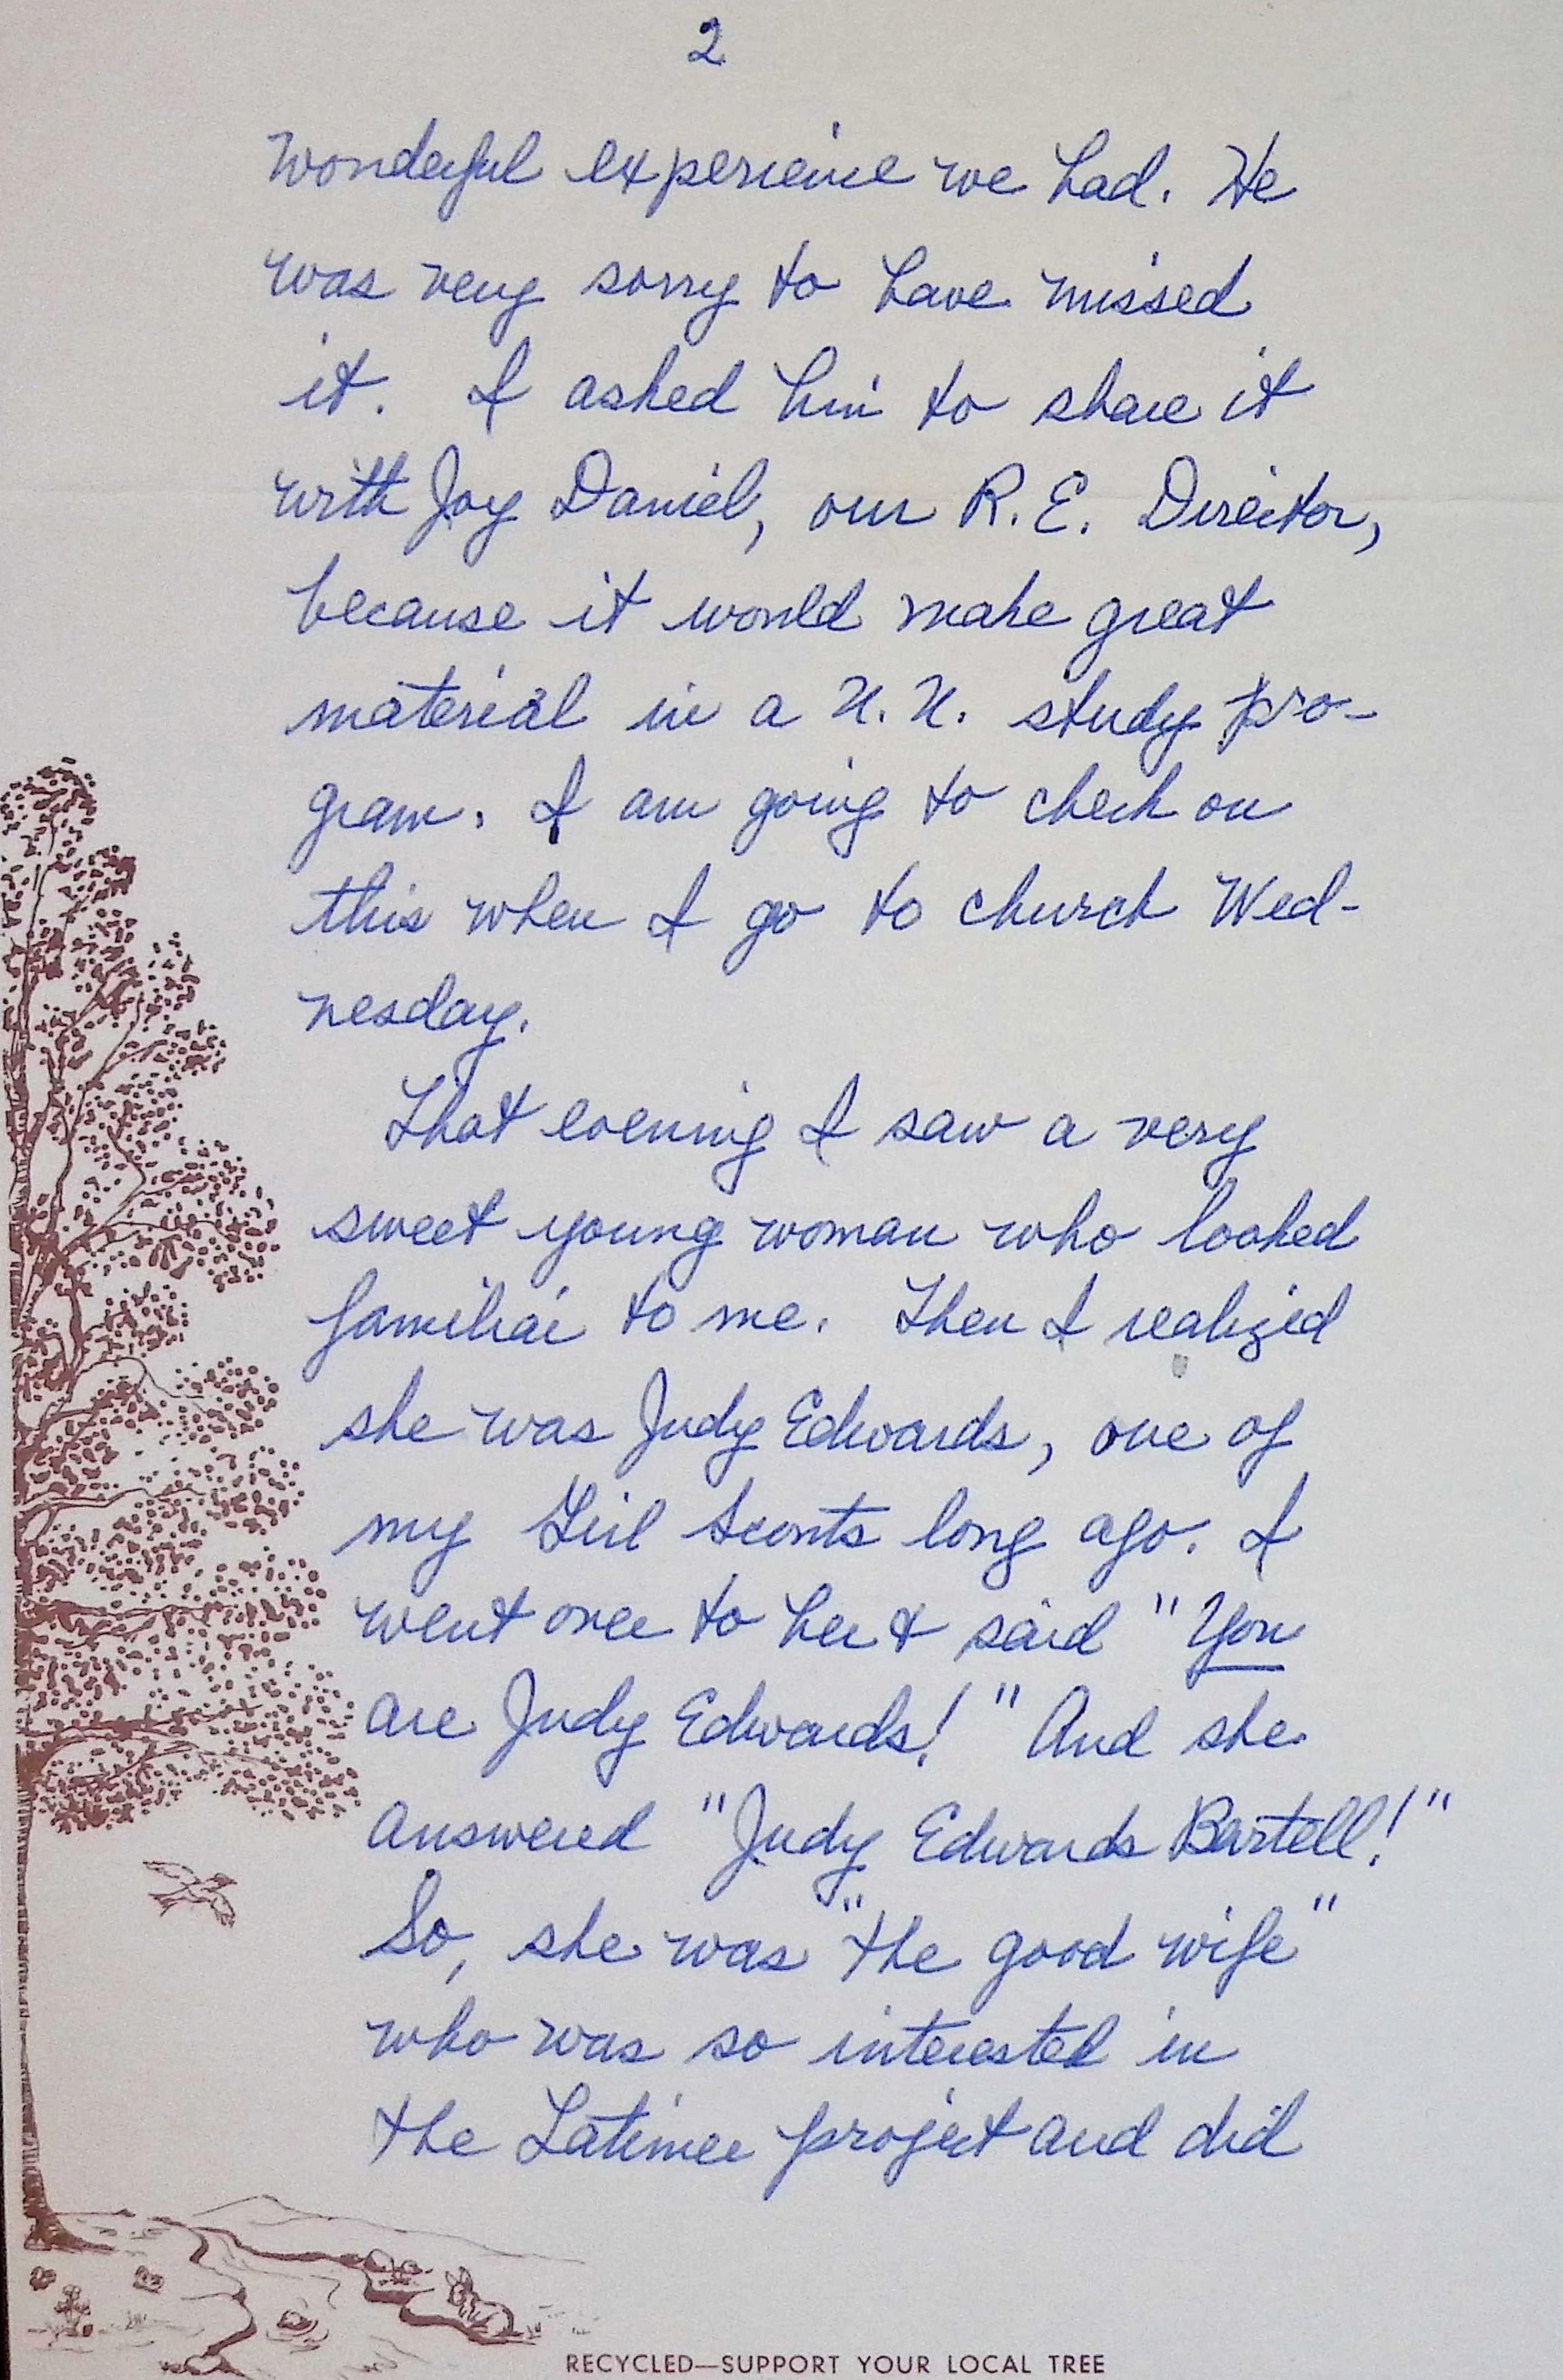 2
wonderful experience we had. He
was very sorry to have missed
it. I asked him to share it
with Joy Daniel, our R.E. Director,
because it would make great
material in a U.U. study pro-
gram. I am going to check on
this when I go to church Wed-
nesday.
That evening I saw a very
sweet young woman who looked
familiar to me. Then I realized
she was Judy Edwards, one of
my Girl Scouts long ago. I
went over to her & said "You
are Judy Edwards!" And she
answered "Judy Edwards Bartell!"
So, she was "the good wife"
who was so interested in
the Latimer project and did
RECYCLED—SUPPORT YOUR LOCAL TREE